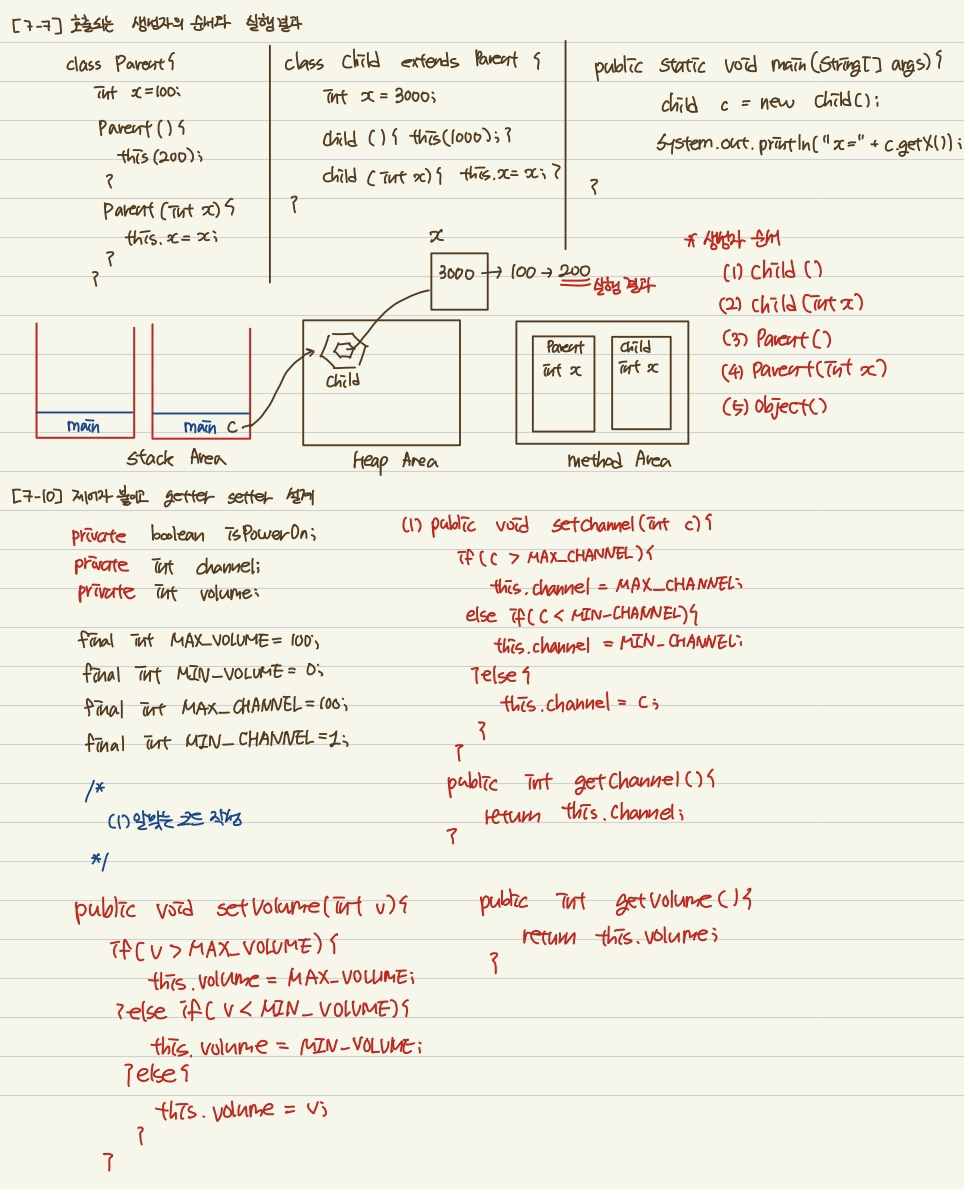 [7-7] 호출되는 생성자의 순서와 실행결과
class Parent{
int x=100;
Parent() {
this(200);
}
Parent(int x) {
this.x=x;
}
}
class Child extends Parent {
int x = 3000;
child () { this(1000); }
child (int x) { this.x= x; }
}
public static void main(String[] args) {
child c = new Child();
System.out.println("x=" + c.getX());
}
x
3000 → 100 → 200
실행 결과
* 생성자 순서
(1) Child ()
(2) Child (int x)
(3) Parent()
(4) Parent(int x)
(5) Object()
main
main c
Stack Area
Child
Heap Area
Parent
int x
Child
int x
method Area
[7-10] 제어자 붙이고 getter setter 설계
private boolean isPowerOn;
private int channel;
private int volume;
final int MAX_VOLUME = 100;
final int MIN_VOLUME = 0;
final int MAX_CHANNEL = 100;
final int MIN_CHANNEL = 1;
/*
(1) 알맞는 코드 작성
*/
(1) public void setChannel(int c) {
if(c > MAX_CHANNEL) {
this.channel = MAX_CHANNEL;
else if(C < MIN-CHANNEL) {
this.channel = MIN_CHANNEL;
}else {
this.channel = c;
}
}
public int getChannel () {
return this.Channel;
}
public void setVolume(int v) {
if( v > MAX_VOLUME) {
this.volume = MAX_VOLUME;
}else if( v < MIN_VOLUME) {
this.volume = MIN_VOLUME;
}else {
this.volume = v;
}
}
public int getVolume () {
return this.volume;
}